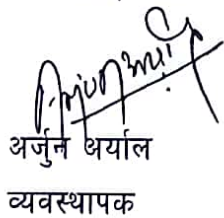 अर्जुन अर्याल
व्यवस्थापक